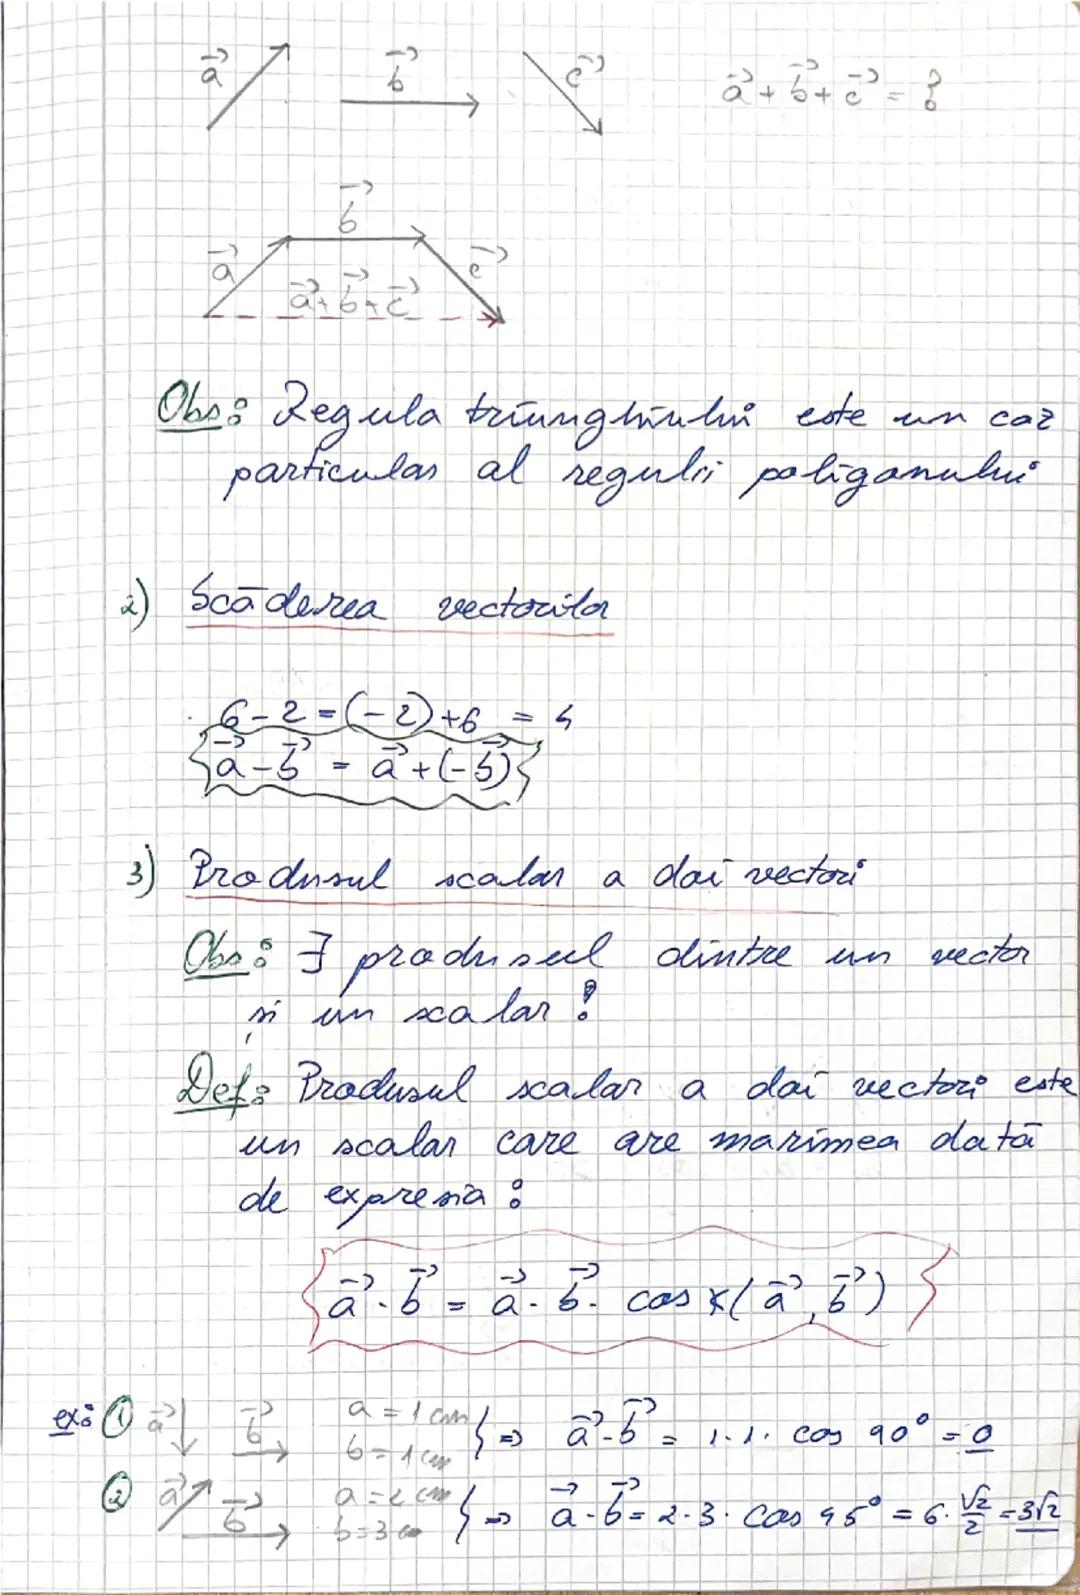 a⃗ b⃗ c⃗ a⃗ + b⃗ + c⃗ = ?
b⃗
a⃗ c⃗
a⃗ + b⃗ + c⃗
Obs: Regula triunghiului este un caz
particular al regulii poligonului
2) Scăderea vectorilor
6 - 2 = (-2) + 6 = 4
a⃗ - b⃗ = a⃗ + (-b⃗)
3) Produsul scalar a doi vectori
Obs: ∃ produsul dintre un vector
și un scalar!
Def: Produsul scalar a doi vectori este
un scalar care are marimea dată
de expresia:
a⃗ · b⃗ = a⃗ · b⃗ · cos ∢(a⃗, b⃗)
ex: ① a⃗ b⃗ a = 1 cm b = 1 cm } => a⃗ · b⃗ = 1 · 1 · cos 90° = 0
② a⃗ b⃗ a = 2 cm b = 3 cm } => a⃗ · b⃗ = 2 · 3 · cos 45° = 6 · √2/2 = 3√2